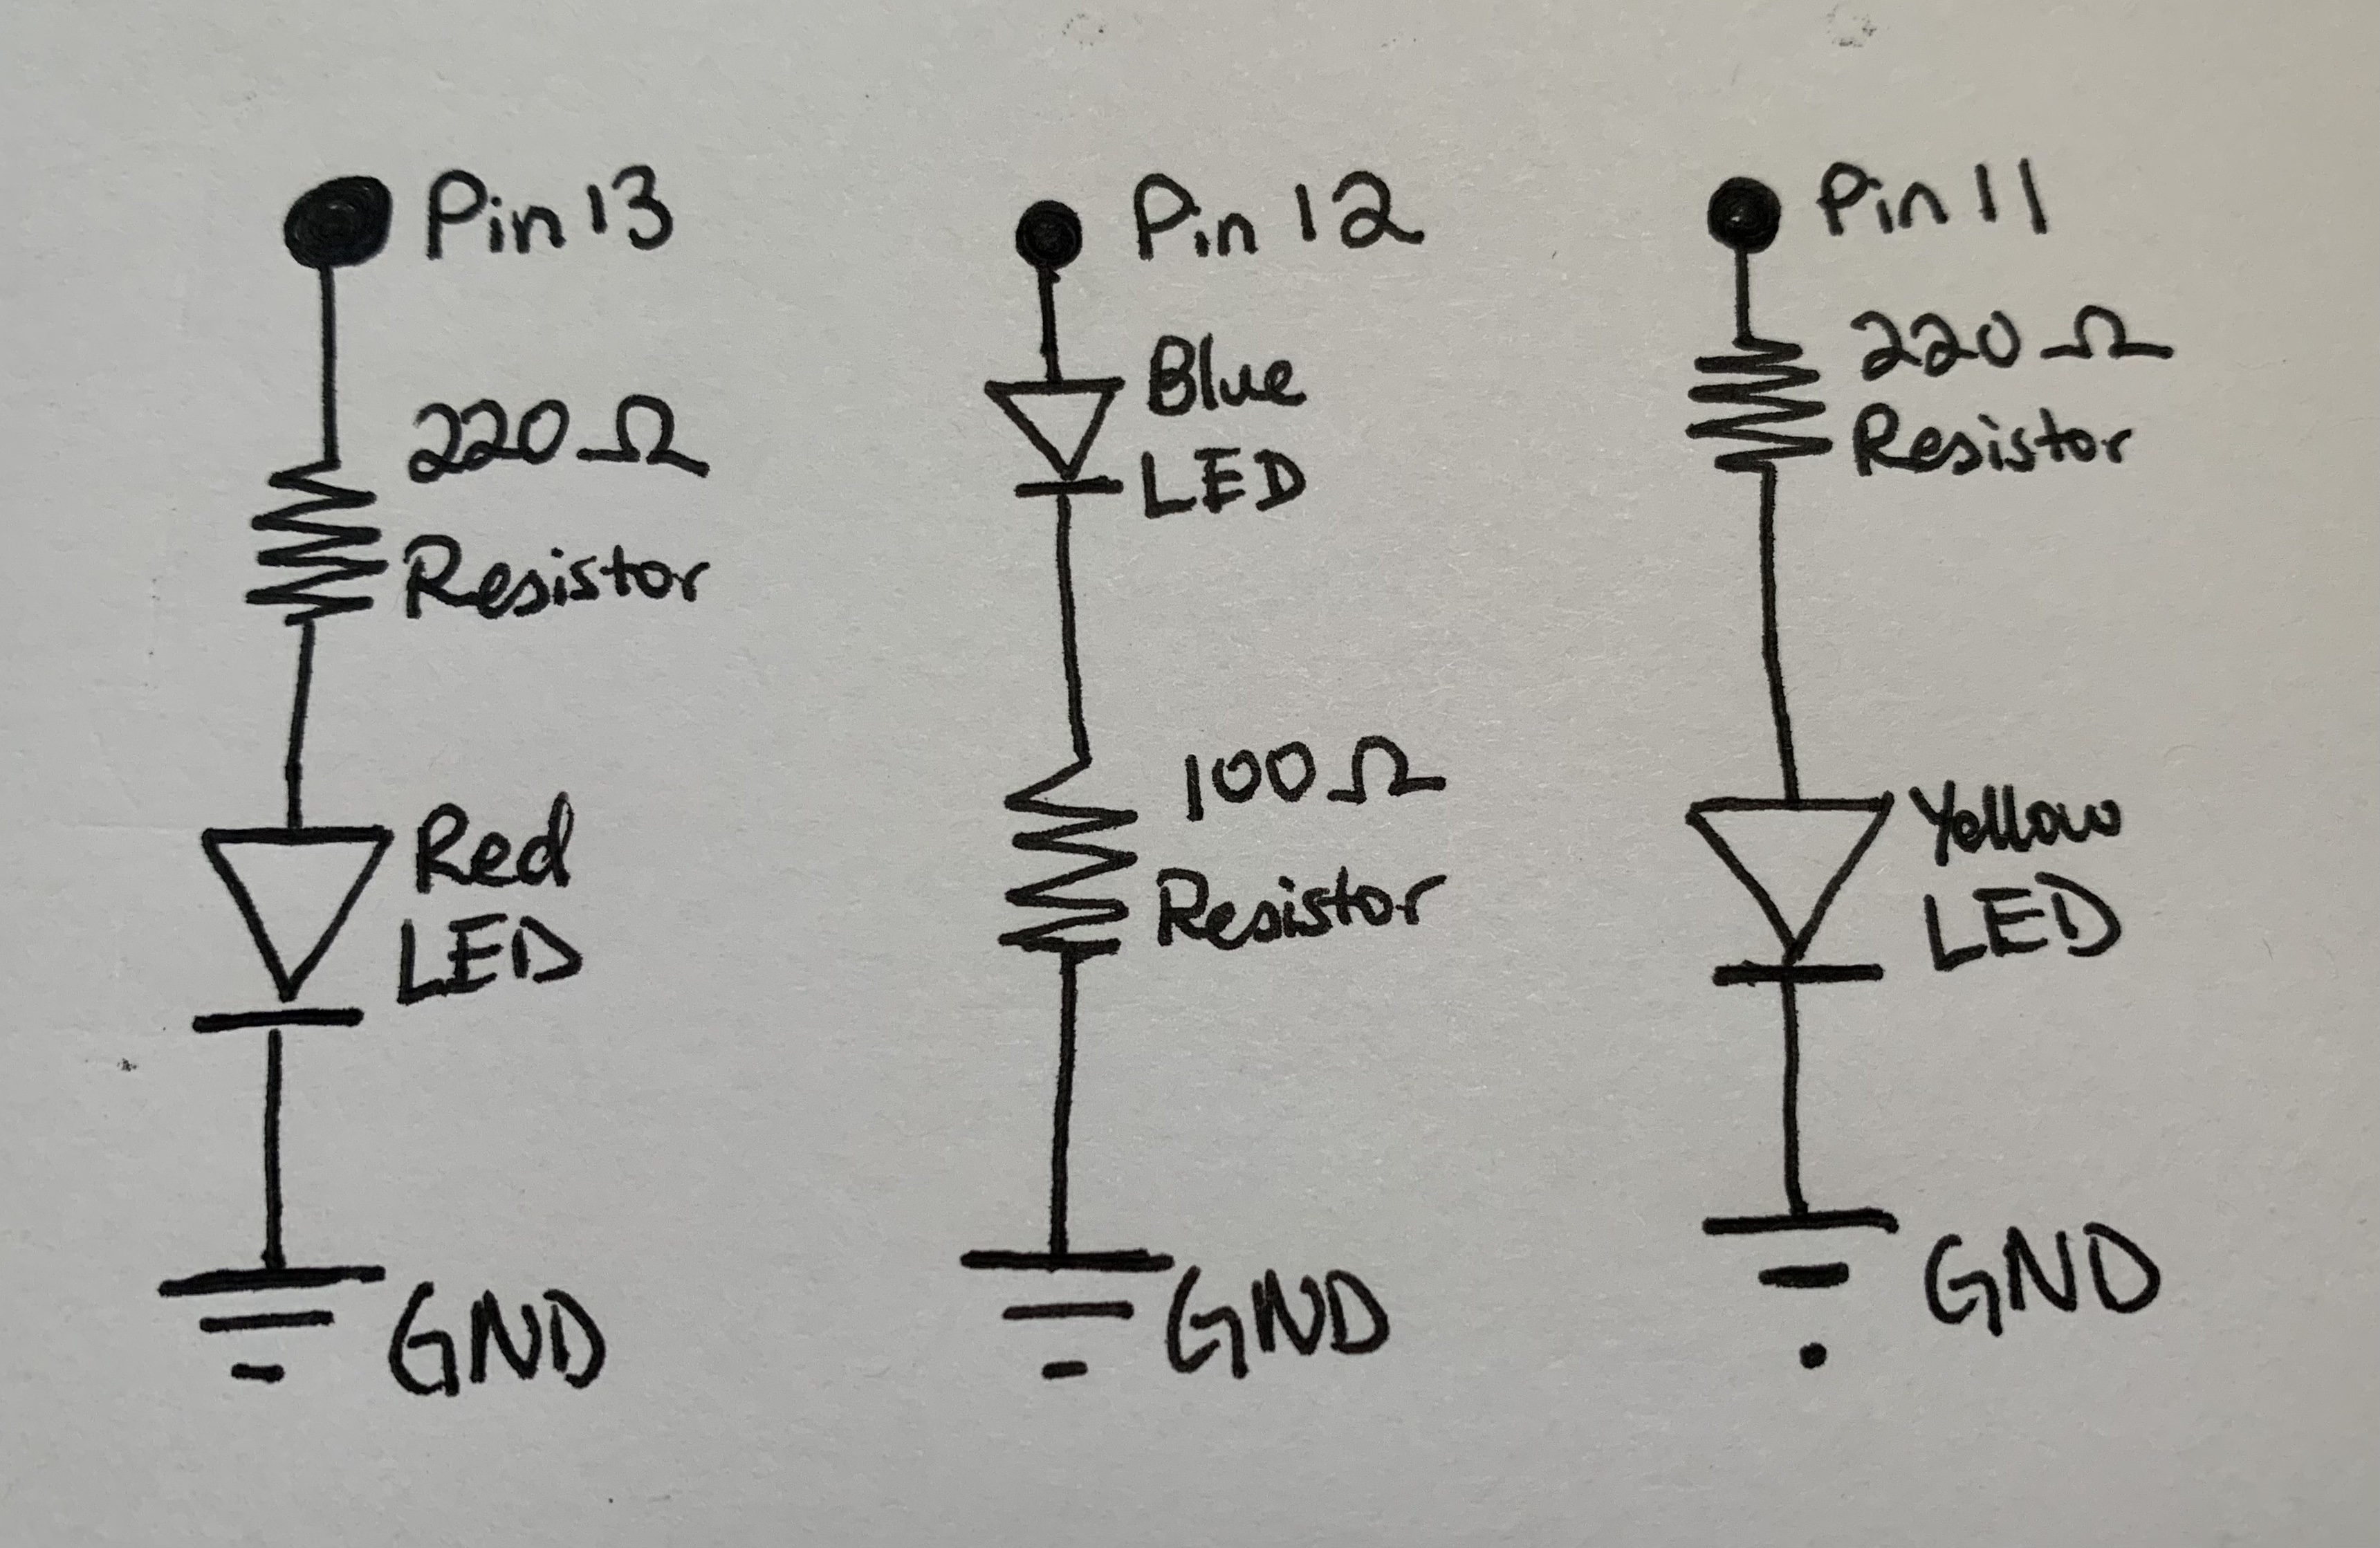 Pin 13
220 Ω
Resistor
Red
LED
GND
Pin 12
Blue
LED
100 Ω
Resistor
GND
Pin 11
220 Ω
Resistor
Yellow
LED
GND